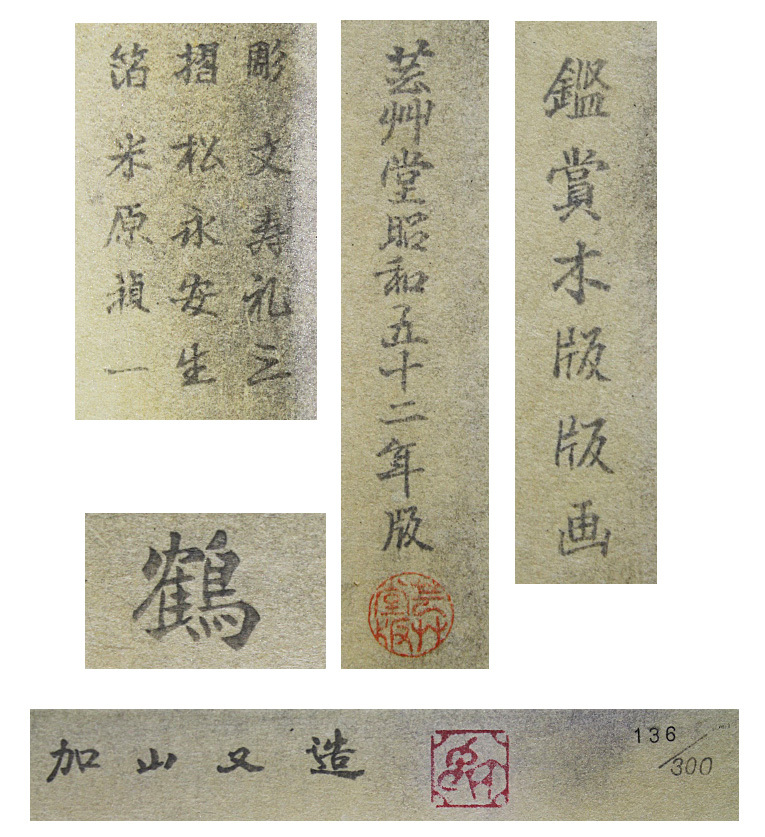 鑑賞木版版画
芸艸堂昭和五十二年版
芸艸
堂版
彫 文寿礼三
摺 松永安生
箔 米原禎一
鶴
加山又造
136/300